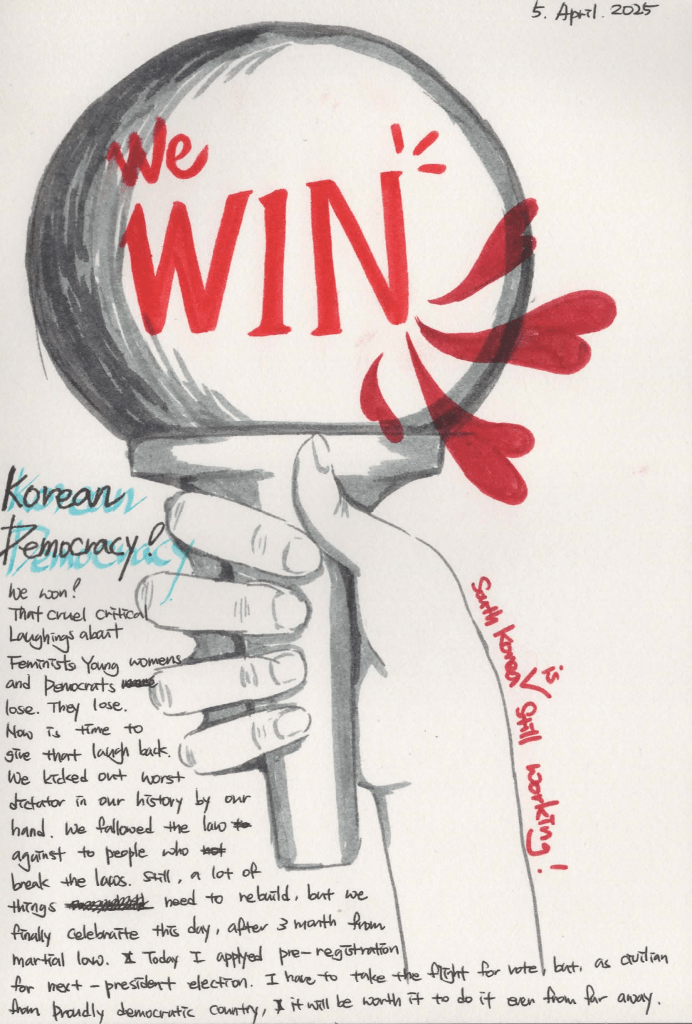 5. April. 2025
We
WIN
Korean
Democracy!
We won!
That cruel critical
Laughings about
Feminists Young womens
and Democrats
lose. They lose.
Now is time to
give that laugh back.
We kicked out worst
dictator in our history by our
hand. We followed the law to
against to people who not
break the laws. Still, a lot of
things need to rebuild, but we
finally celebraite this day, after 3 month from
martial law. Today I applyed pre-registration
for next-president election. I have to take the flight for vote, but, as civilian
from proudly democratic country, it will be worth it to do it even from far away.
South Korea is still working!